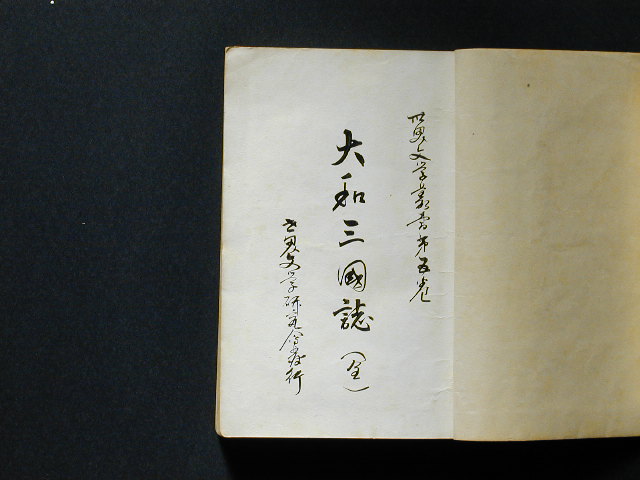 世界文学叢書第五巻
大和三國誌(全)
世界文学研究会發行